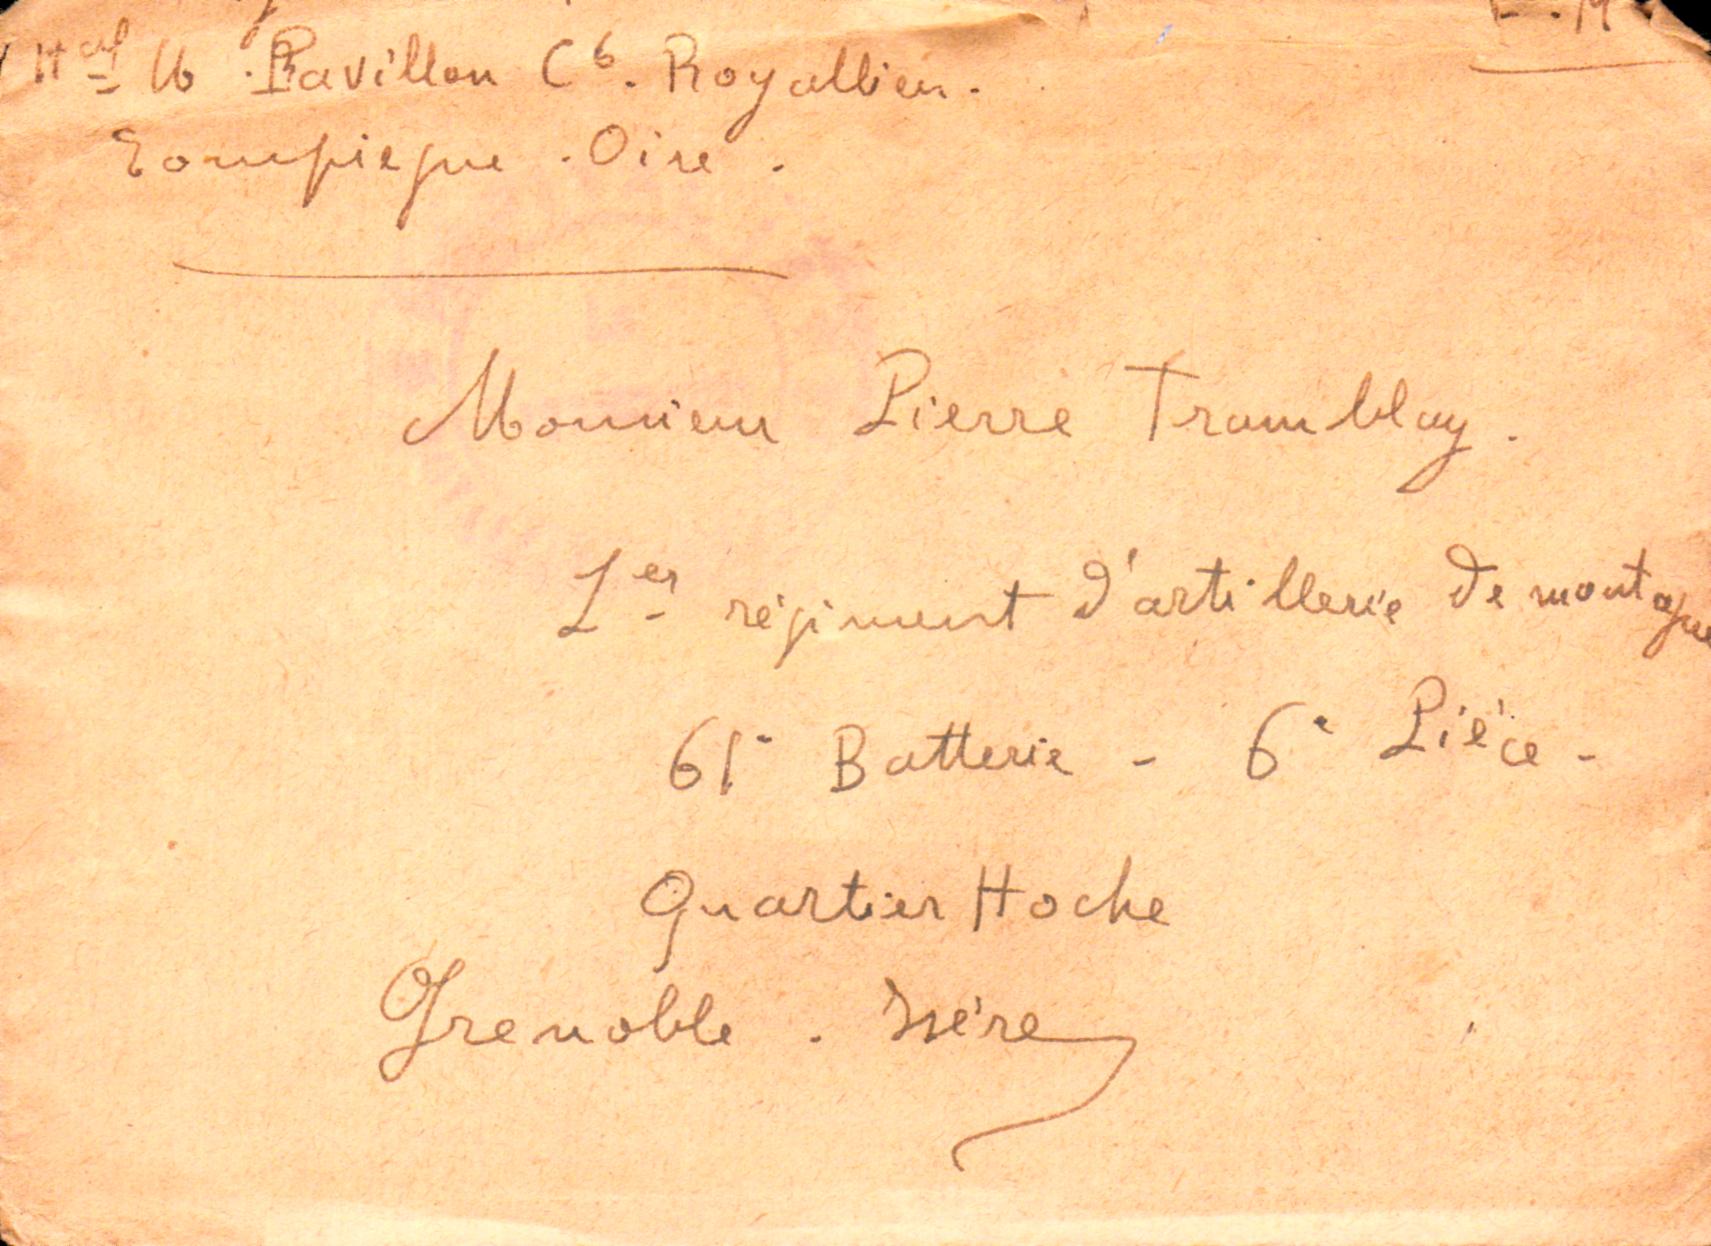 Hal 16 Pavillon C6. Royallieu.
Compiegne. Oise.
Monsieur Pierre Tramblay.
1er régiment d'artillerie de montagne
61e Batterie - 6e Pièce -
Quartier Hoche
Grenoble. Isère